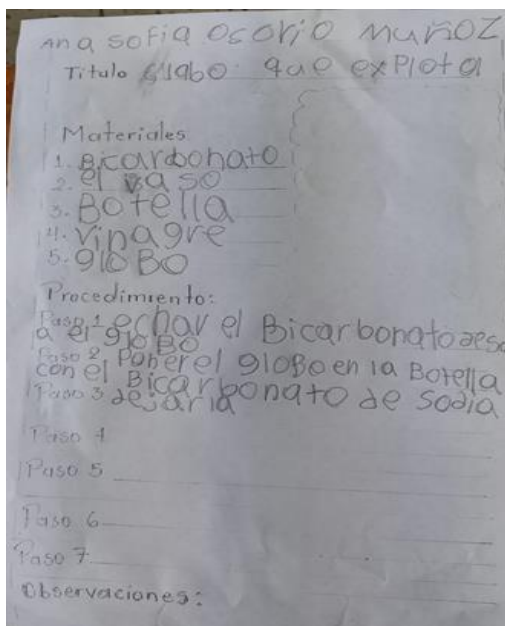 Ana sofia Osorio Muñoz
Titulo Glabo que explota
Materiales
1. Bicarbonato
2. el vaso
3. Botella
4. Vinagre
5. gloBo
Procedimiento:
Paso 1 echar el Bicarbonato deso
a el gloBo
Paso 2 Poner el gloBo en la Botella
con el Bicarbonato de sodia
Paso 3 dejarla
Paso 4
Paso 5
Paso 6
Paso 7
Observaciones: